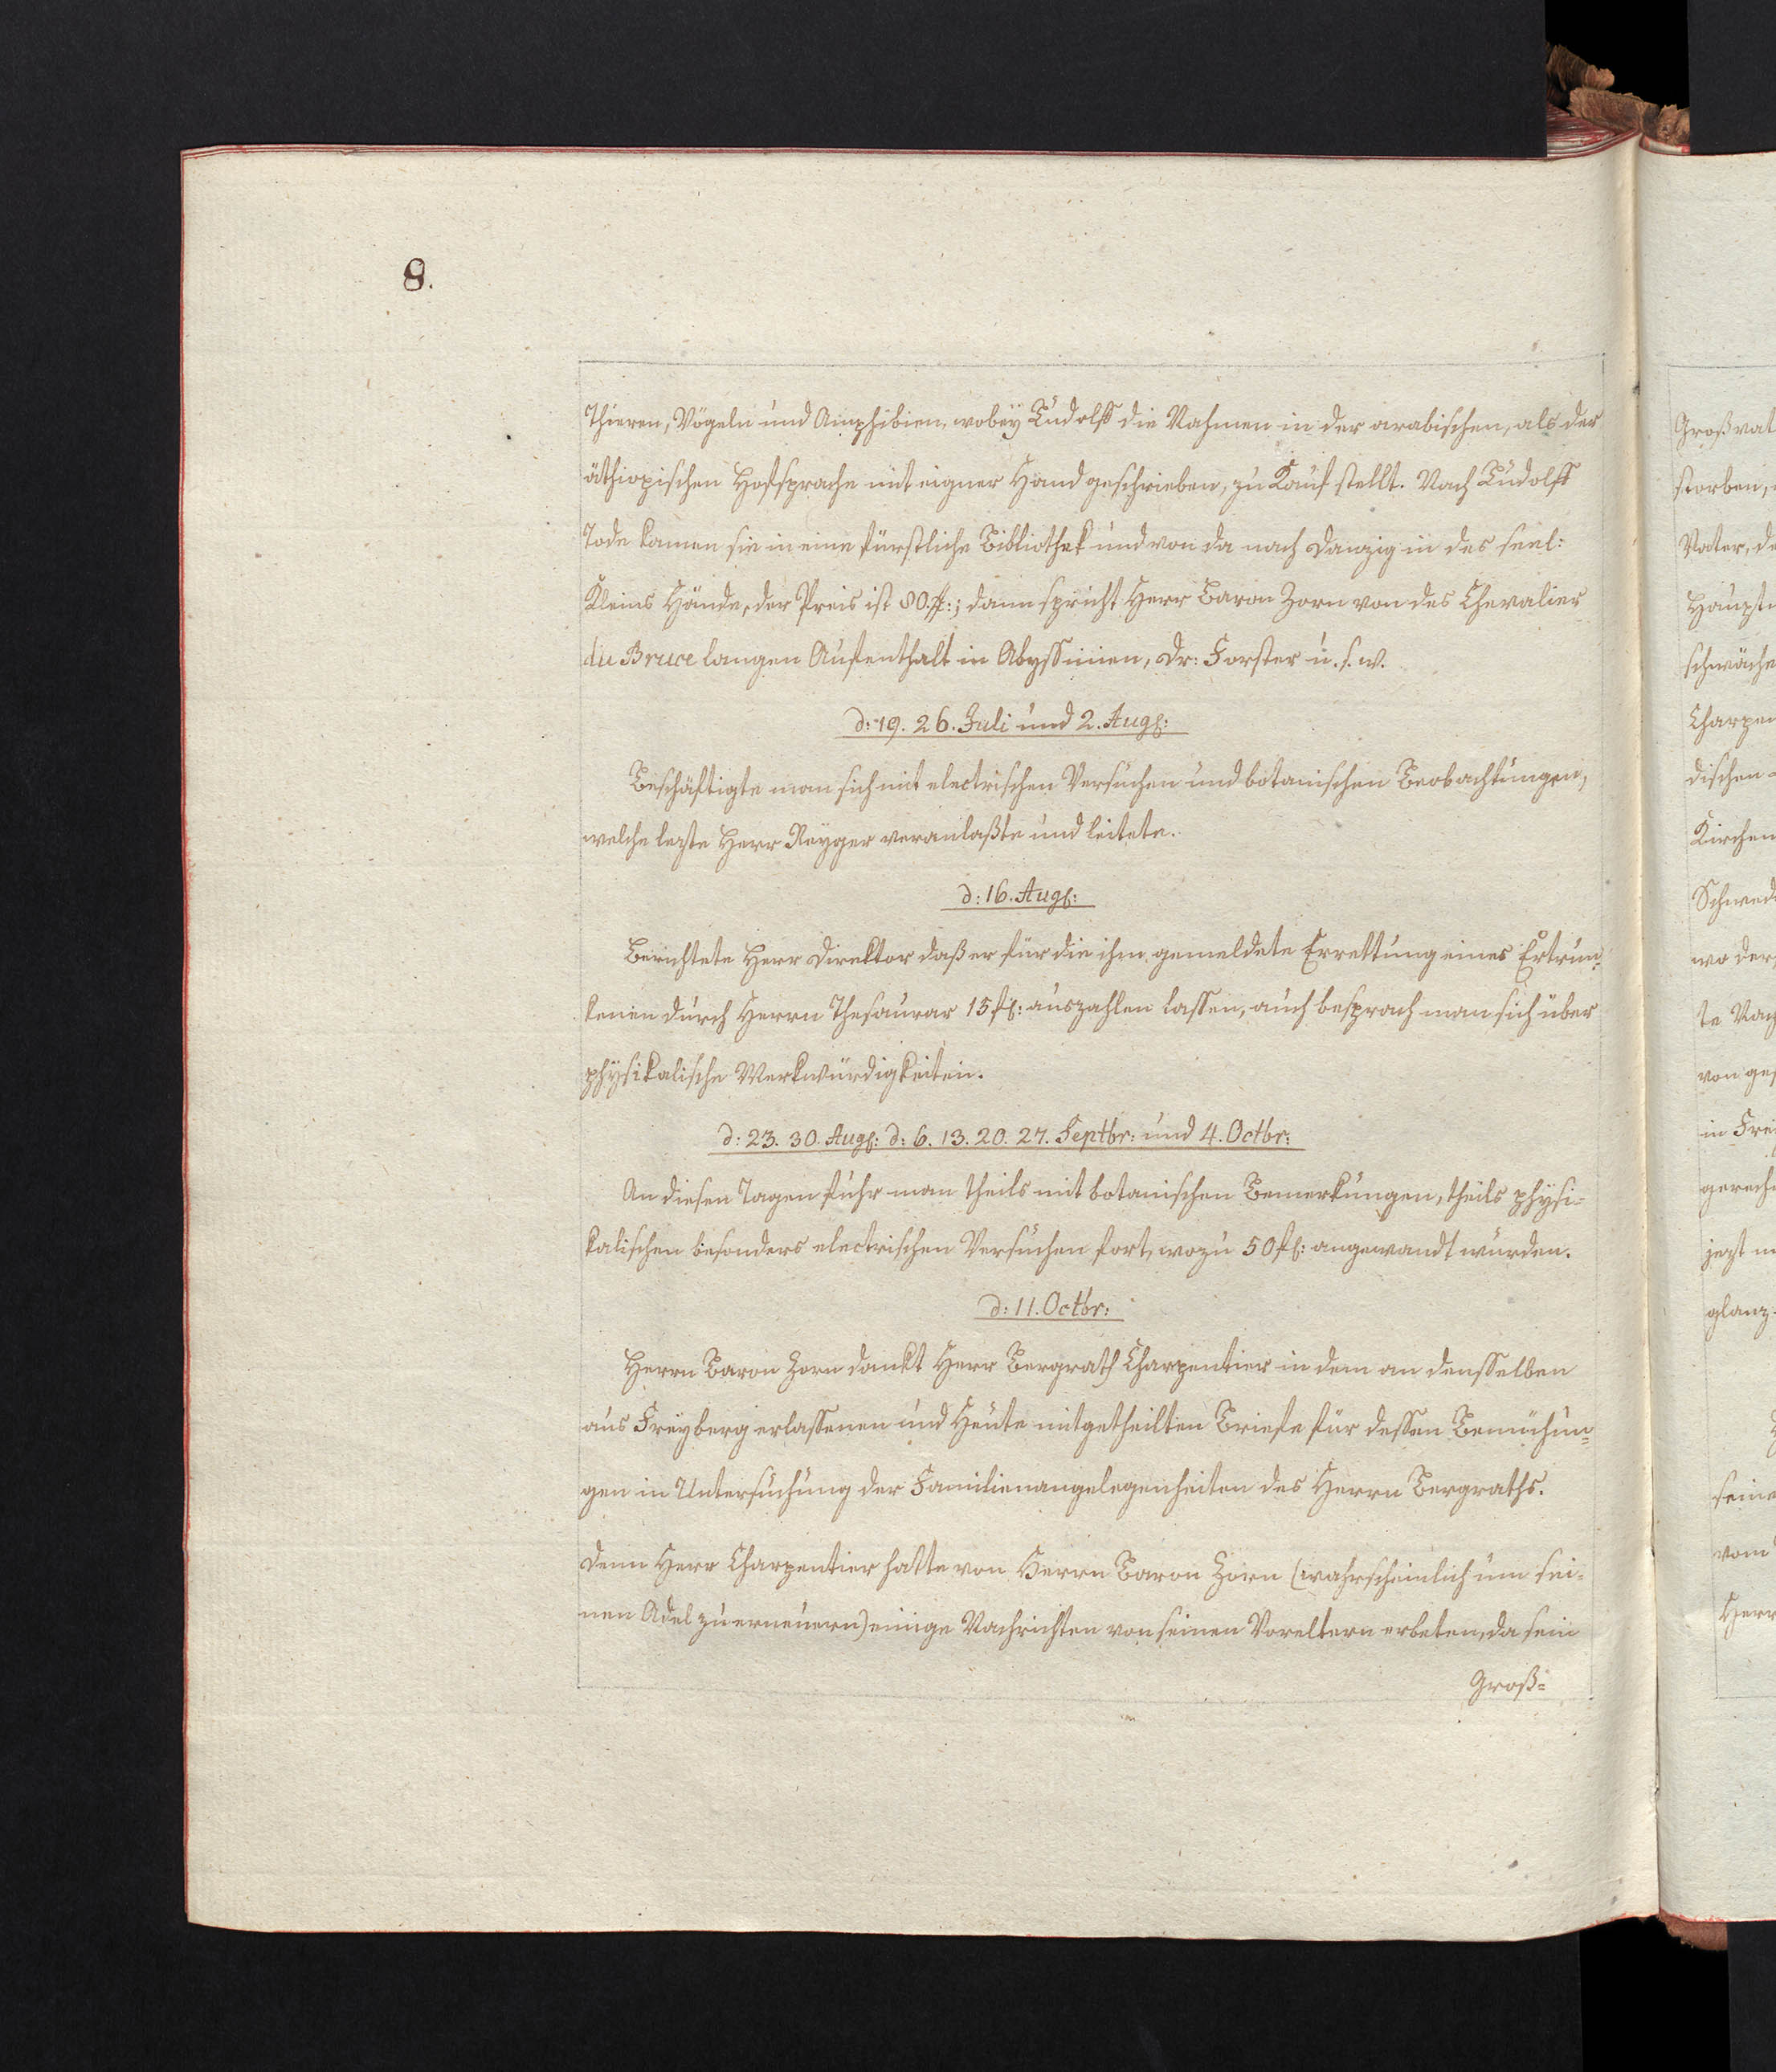 8.
Thieren, Vögeln und Amphibien, wobey Ludolff die Nahmen in der arabischen, als der
äthiopischen Hofsprache mit eigner Hand geschrieben, zu Kauf stellt. Nach Ludolff
Tode kamen sie in eine fürstliche Bibliothek und von da nach Danzig in des seel:
Kleins Hände, der Preis ist 80. #:; dann spricht Herr Baron Zorn von des Chevalier
du Bruce langen Aufenthalt in Abyssinien, Dr: Forster u. s. w.
d: 19. 26. Juli und 2. Aug:
Beschäftigte man sich mit electrischen Versuchen und botanischen Beobachtungen,
welche lezte Herr Reyger veranlaßte und leitete.
d: 16. Aug:
Berichtete Herr Direktor daß er für die ihm gemeldete Errettung eines Ertrun-
kenen durch Herrn Thesaurar 15 fl: auszahlen lassen, auch besprach man sich über
physikalische Merkwürdigkeiten.
d: 23. 30. Aug: d: 6. 13. 20. 27. Septbr: und 4. Octbr:
An diesen Tagen fuhr man theils mit botanischen Bemerkungen, theils physi-
kalischen besonders electrischen Versuchen fort, wozu 50 fl: angewandt wurden.
d: 11. Octbr:
Herrn Baron Zorn dankt Herr Bergrath Charpentier in dem an denselben
aus Freyberg erlassenen und Heute mitgetheilten Briefe für dessen Bemühun-
gen in Untersuchung der Familienangelegenheiten des Herrn Bergraths.
Denn Herr Charpentier hatte von Herrn Baron Zorn (wahrscheinlich um sei-
nen Adel zu erneuern) einige Nachrichten von seinen Voreltern erbeten, da sein
Groß-
Großvat
storben,
Vater, de
Haupt
schwäche
Charpen
dischen
Kirchen
Schwed
wo der
te Nach
von ges
in Frei
gerech
jezt
glanz
seine
vom
Herr